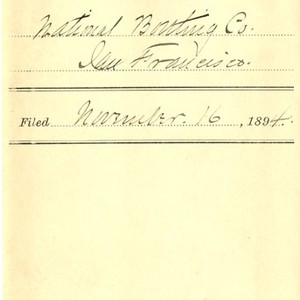 National Bottling Co.
San Francisco.
Filed November. 16, 1894.